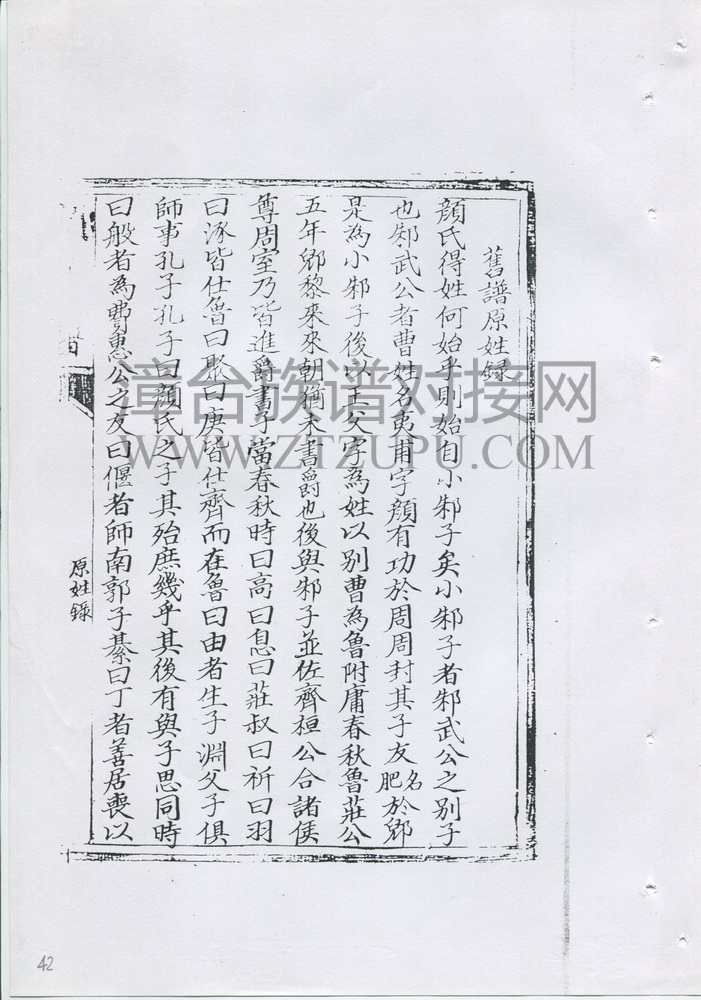 舊譜原姓錄
顏氏得姓何始乎則始自小邾子矣小邾子者邾武公之別子
也邾武公者曹姓名夷甫字顏有功於周周封其子友名肥於郳
是為小邾子後以王父字為姓以別曹為魯附庸春秋魯莊公
五年郳黎來來朝猶未書爵也後與邾子並佐齊桓公合諸侯
尊周室乃皆進爵書子當春秋時曰高曰息曰莊叔曰祈曰羽
曰涿皆仕魯曰聚曰庚皆仕齊而在魯曰由者生子淵父子俱
師事孔子孔子曰顏氏之子其殆庶幾乎其後有與子思同時
曰般者為費惠公之友曰偃者師南郭子綦曰丁者善居喪以
原姓錄
章台族谱对接网
WWW.ZTZUPU.COM
42